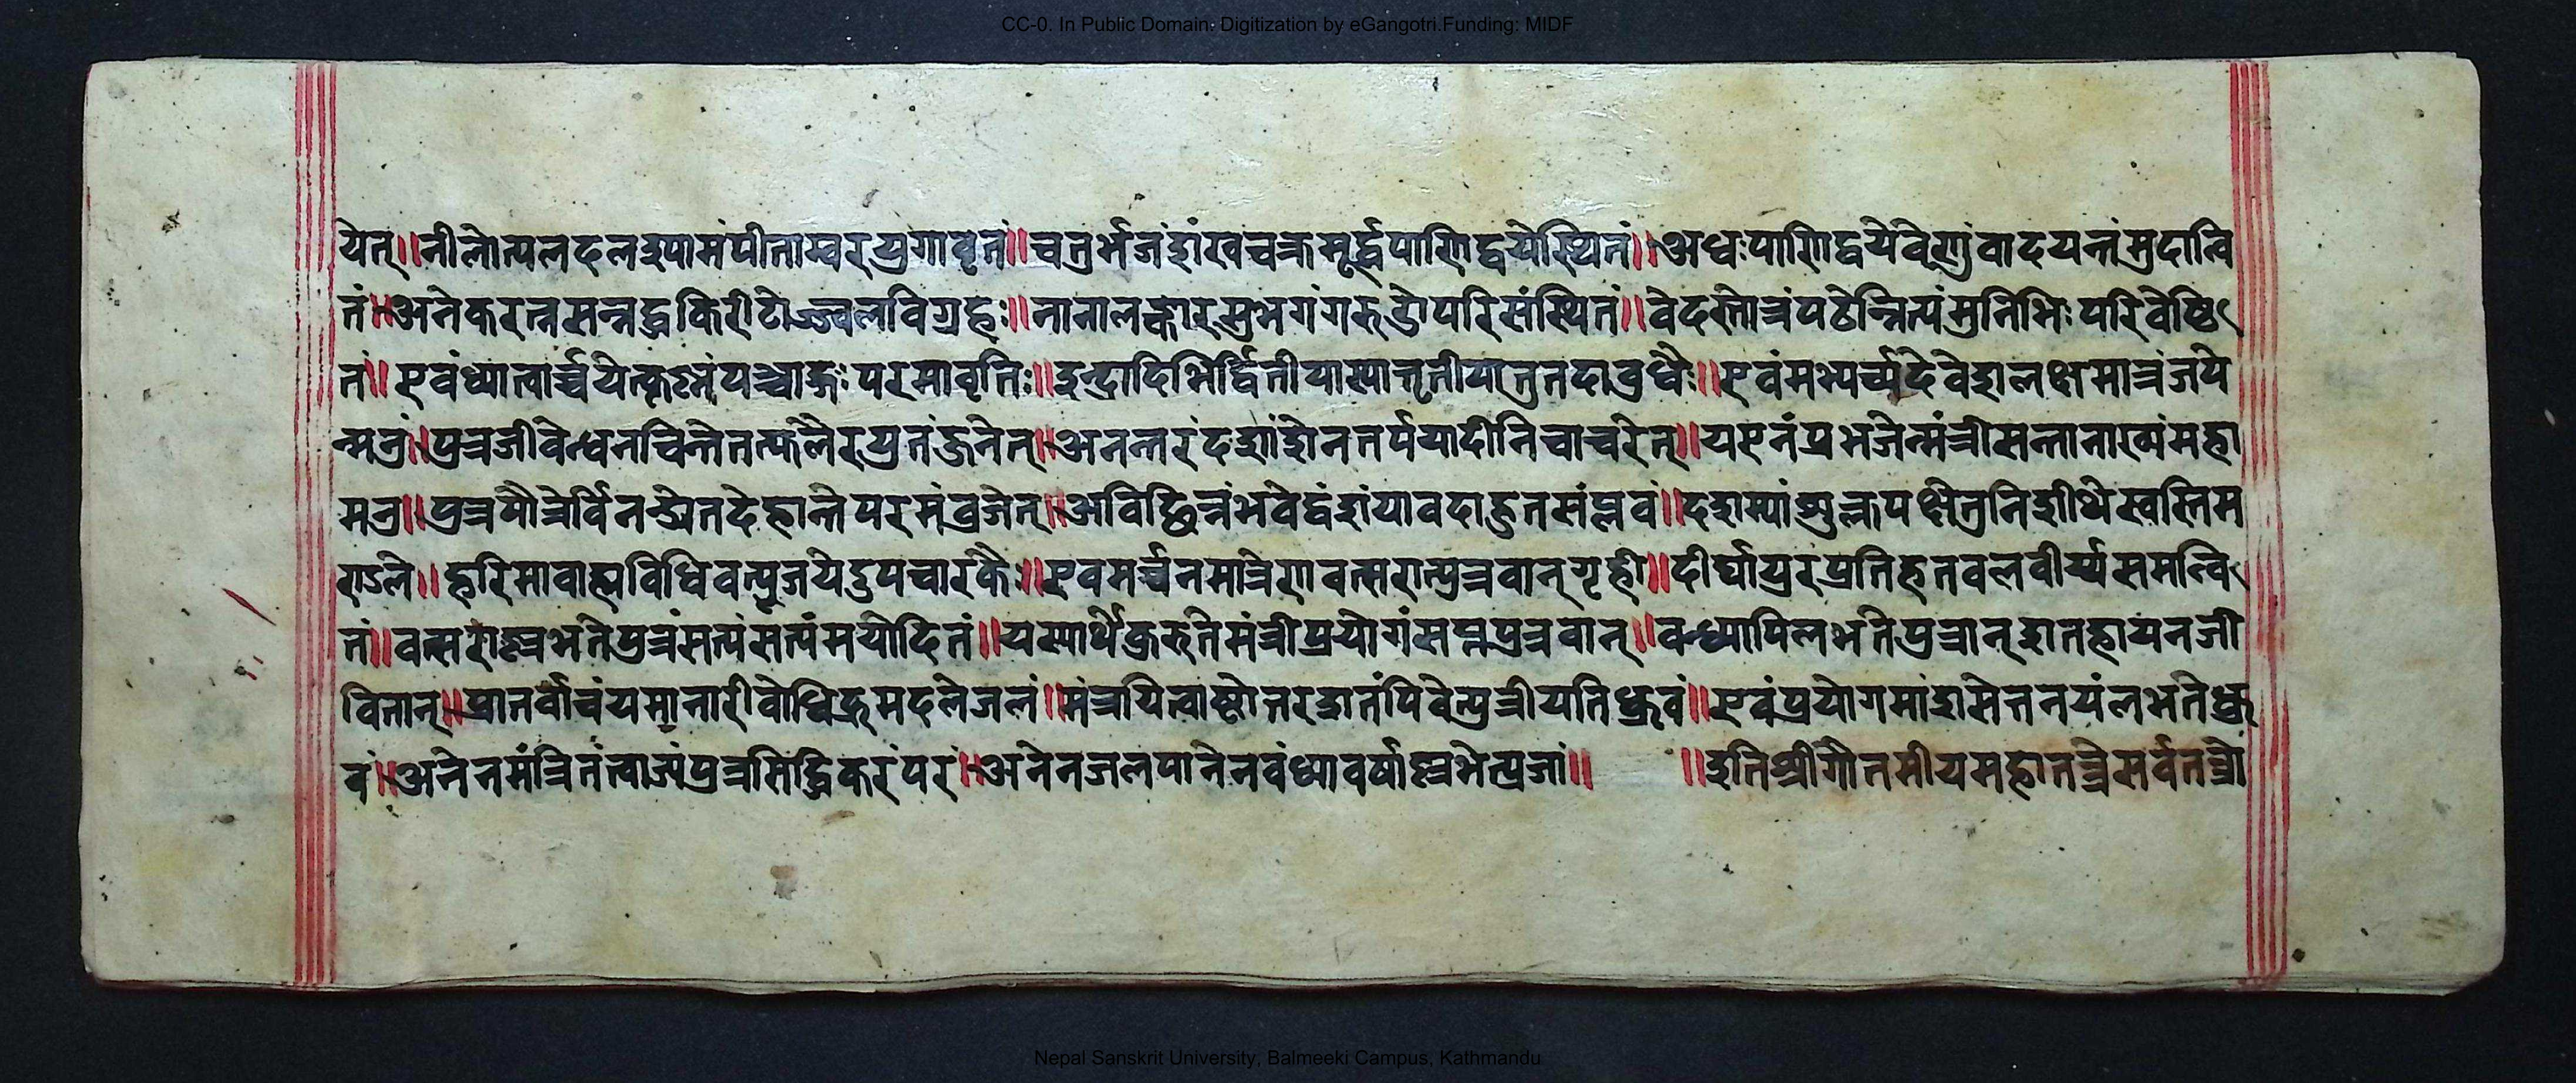 CC-0. In Public Domain. Digitization by eGangotri.Funding: MIDF
येत्॥नीलोत्पलदलश्यामंपीताम्बरयुगावृतं॥चतुर्भुजंशंखचक्रमूर्द्ध्वपाणिद्वयेस्थितं॥अधःपाणिद्वयेवेणुंवादयन्तंमुदान्वि
तं॥अनेकरत्नसन्नद्धकिरीटोज्ज्वलविग्रहः॥नानालङ्कारसुभगंगरुडोपरिसंस्थितं॥वेदस्तोत्रंपठेन्नित्यंमुनिभिःपरिवेष्टि
तं॥एवंध्यात्वार्च्चयेत्कृष्णंपञ्चाङ्गःपरमावृतिः॥इन्द्रादिभिर्द्वितीयास्यात्तृतीयातुतदावुधैः॥एवंमभ्यर्च्यदेवेशंलक्षमात्रंजपे
न्मनुं॥पुत्रजीवेन्धनचितेतत्फलैरयुतंजुनेत्॥अनन्तरंदशांशेनतर्पयादीनिचाचरेत्॥यएनंप्रभजेन्मंत्रीसन्तानाख्यंमहा
मनु॥पुत्रपौत्रैर्विनन्द्येतदेहान्तेपरमंव्रजेत्॥अविछिन्नंभवेद्वंशंयावदाद्भुतसंप्लवं॥दशम्यांशुक्लपक्षेतुनिशीथेस्वस्तिम
राऽले॥हरिमावाह्यविधिवत्पूजयेदुपचारकैः॥एवमर्च्चनमात्रेणवत्सरात्पुत्रवान्गृही॥दीर्घायुरप्रतिहतवलवीर्य्यसमन्वि
तं॥वत्सराल्लभतेपुत्रंसत्यंसत्यंमयोदितं॥यस्यार्थेकुरुतेमंत्रीप्रयोगंसप्तपुत्रवान्॥वन्ध्यापिलभतेपुत्रान्शतहायनजी
वितान्॥प्रातर्वाचंयमानारीवोधिद्रुमदलेजलं॥मंत्रयित्वाष्टोत्तरशतंपिवेत्पुत्रीयतिध्रुवं॥एवंप्रयोगमांशसेत्तनयंलभतेध्रु
वं॥अनेनमंत्रितंत्वाज्यंपुत्रसिद्धिकरंपरं॥अनेनजलपानेनवंध्यावर्षाल्लभेत्प्रजां॥ ॥इतिश्रीगौतमीयमहातन्त्रेसर्वतन्त्रो
Nepal Sanskrit University, Balmeeki Campus, Kathmandu